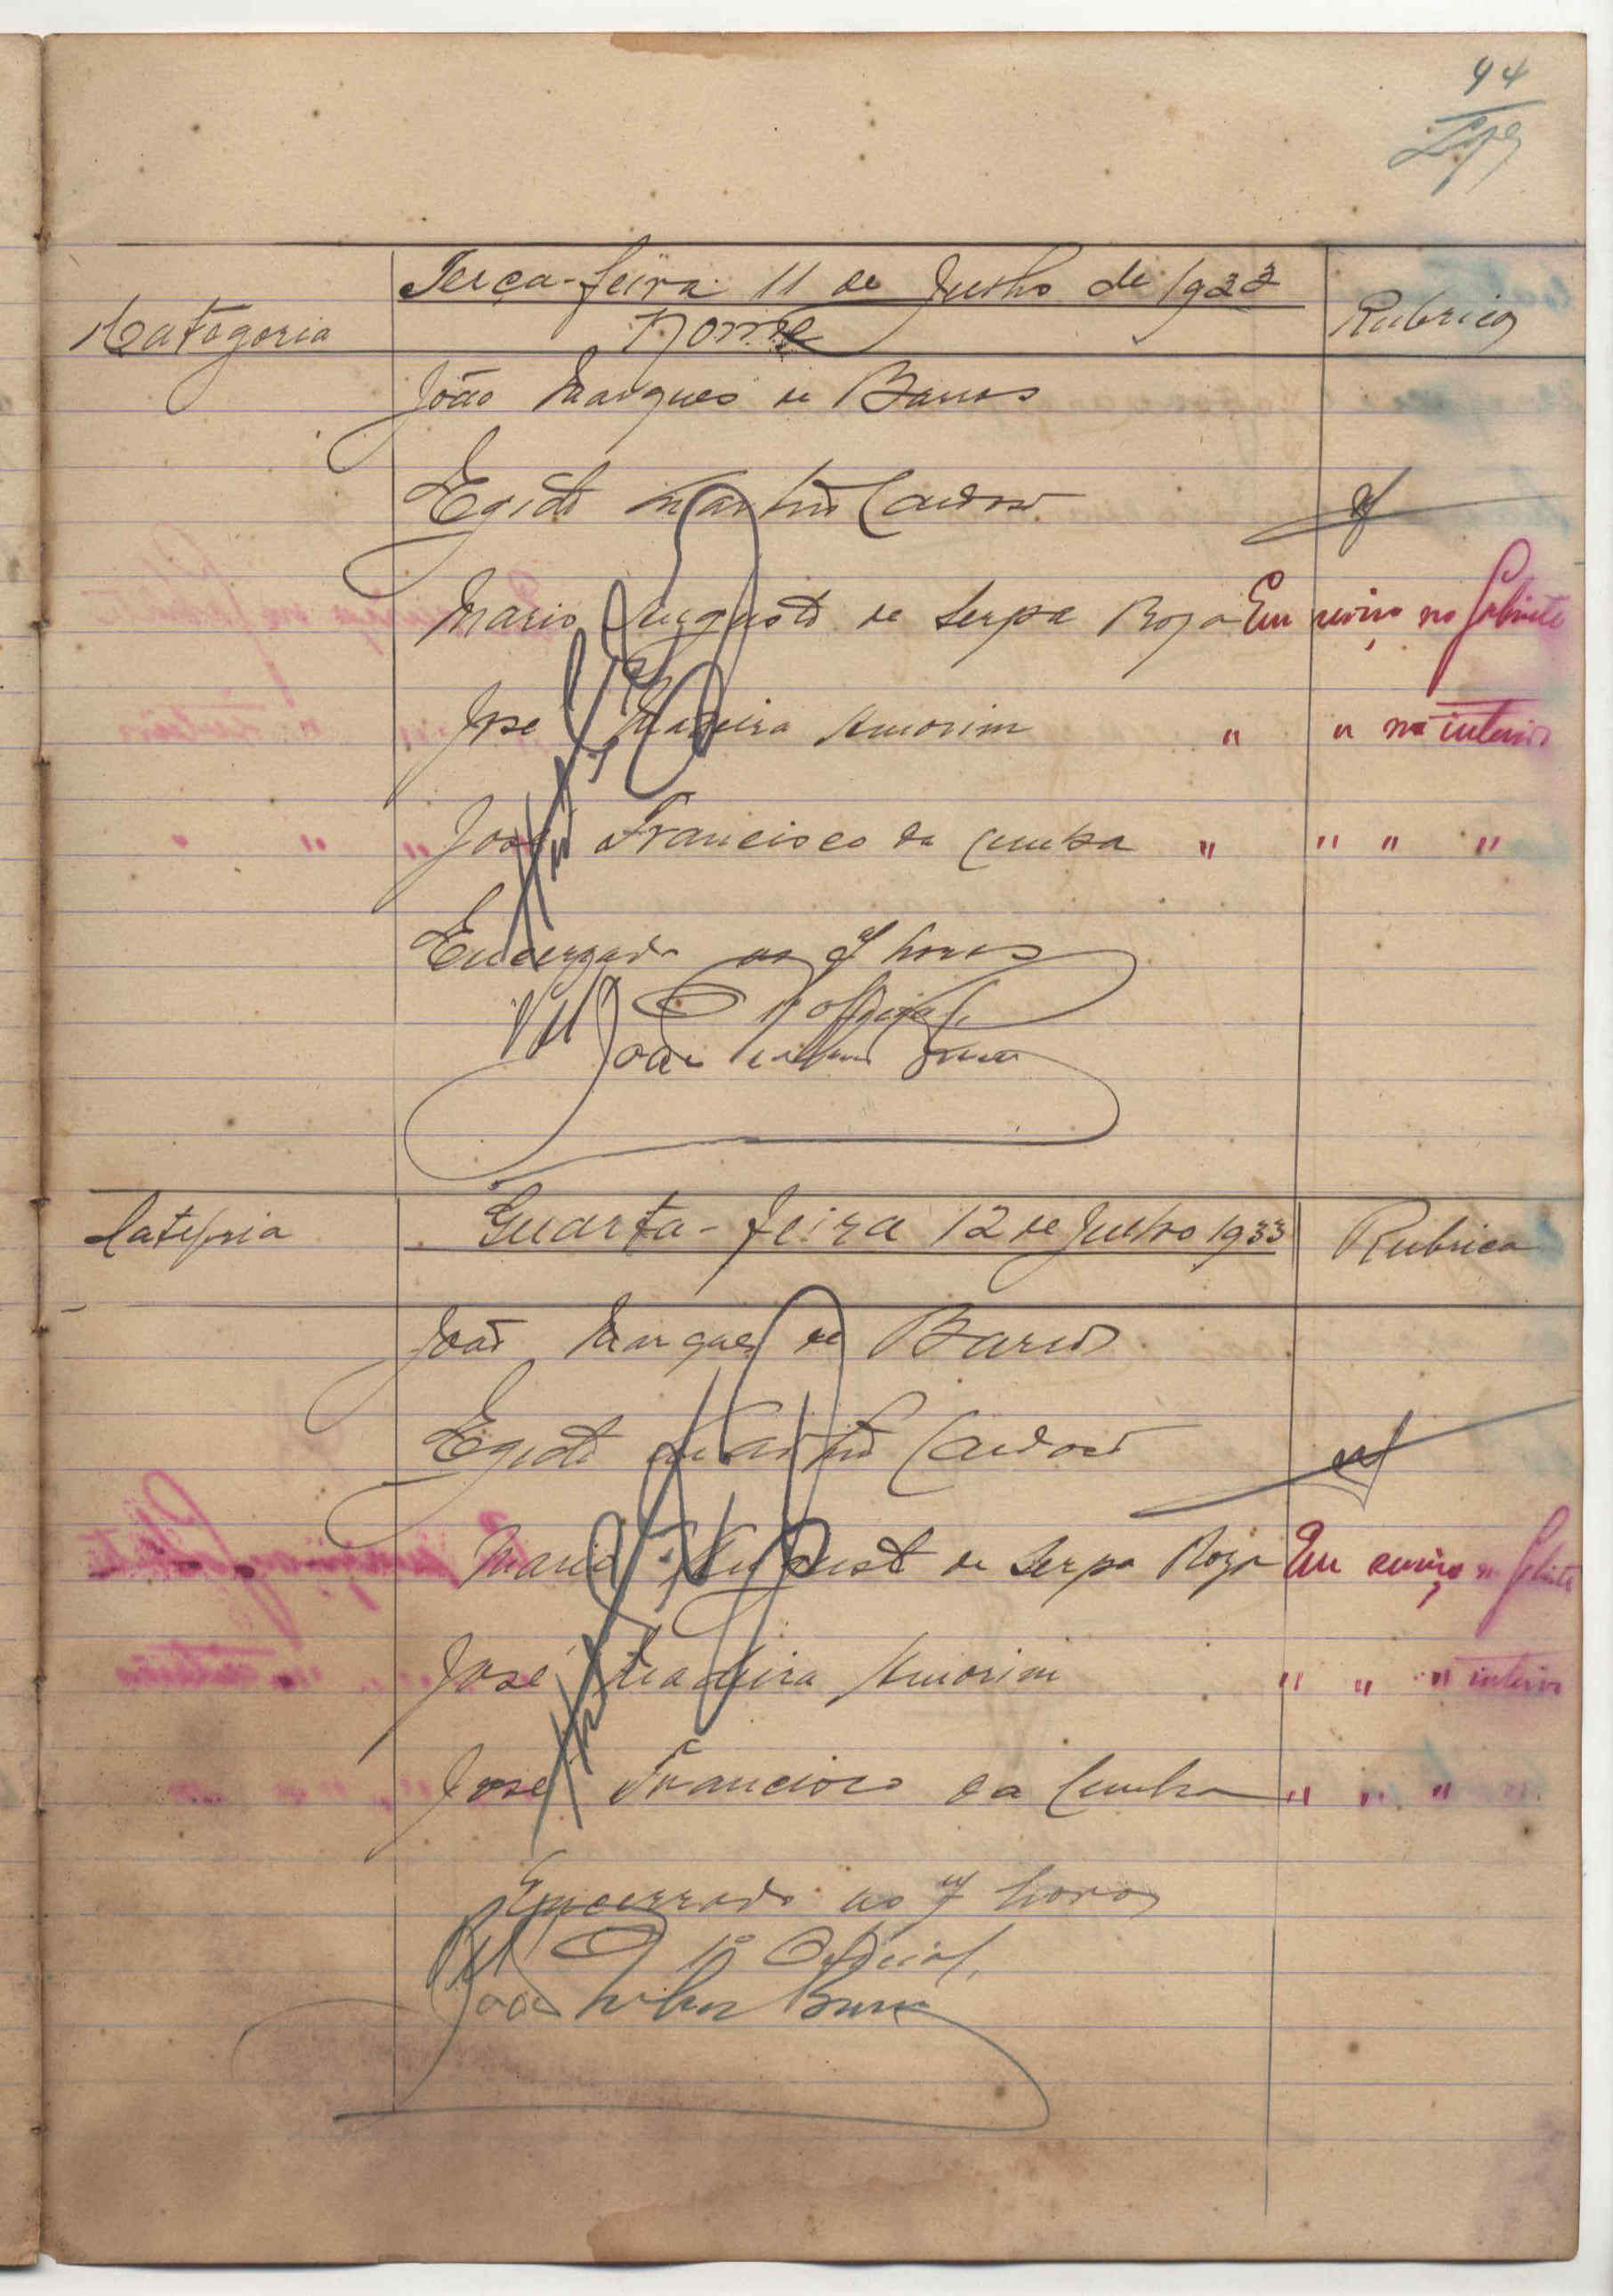 44
Terça-feira 11 de Julho de 1933
Categoria Nome Rubrica
João Marques de Barros
Egidio Martins Cardoso
Mario Augusto de Serpa Roza Em serviço no Gabinete
José Madeira Amorim " " no interior
José Francisco da Cunha " " " "
Encerrado as 7 horas
O 1º official,
João
Categoria Quarta-feira 12 de Julho 1933 Rubrica
João Marques de Barros
Egidio Martins Cardoso
Mario Augusto de Serpa Roza Em serviço no Gabinete
José Madeira Amorim " " " interior
José Francisco da Cunha " " " "
Encerrado as 7 horas
O 1º Official,
João